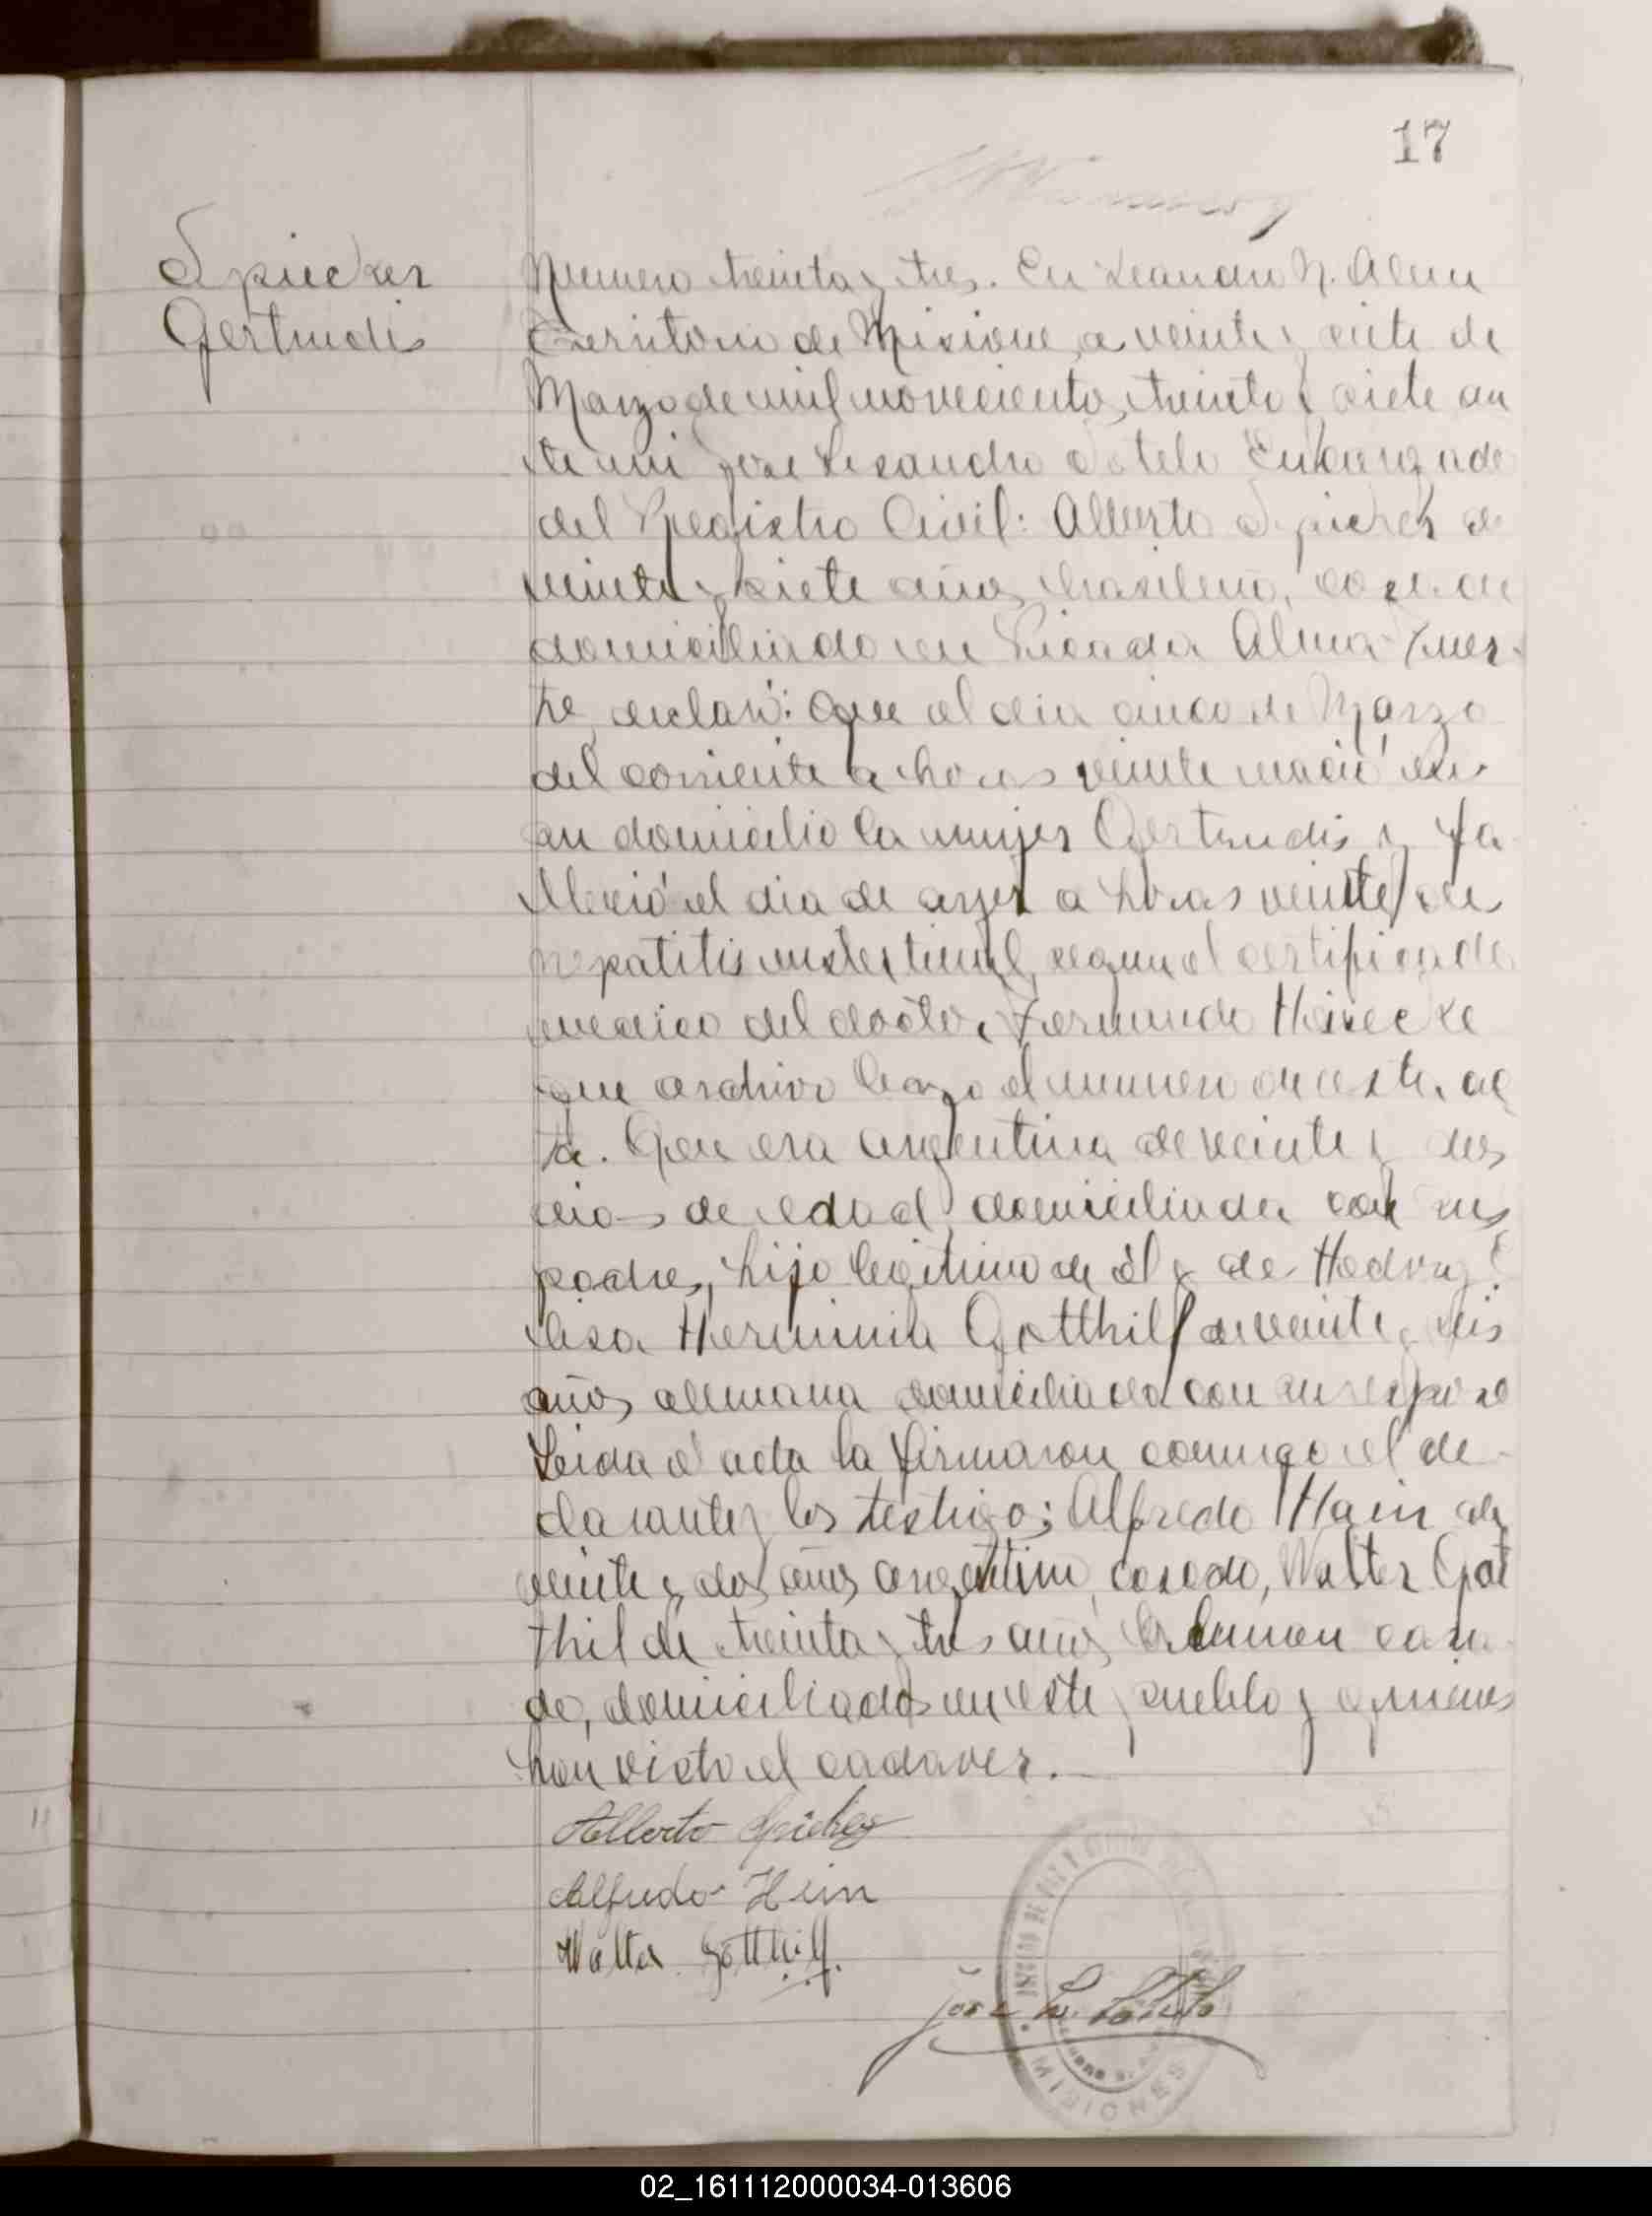 17
Spieker
Gertrudis
Numero treinta y tres. En Leandro N. Alem
Territorio de Misione, a veinte y siete de
Marzo de mil novecientos treinta y siete an
te mi Jose Lisandro Sotelo Encargado
del Registro Civil: Alberto Spieker de
veinte y siete años, brasileño, casado
domiciliado en Picada Alma Fuer-
te, declaró: Que el dia cinco de Marzo
del corriente a horas veinte nació en
su domicilio la mujer Gertrudis y fa-
lleció el dia de ayer a horas veinte, de
segun el certificado
medico del doctor Fernando
que archivo bajo el numero de esta ac
ta. Que era argentina de veinte y dos
dias de edad, domiciliada con sus
padres, hijo legitimo de él y de Hedwig E
lisa Herminia Gotthilf de veinte y seis
años alemana domiciliada con su esposo
Leida el acta la firmaron conmigo el de-
clarante y los testigos: Alfredo Hein de
veinte y dos años argentino, casado, Walter Got
thil de treinta y tres años, aleman casa-
do, domiciliados en este pueblo y quienes
han visto el cadaver.
Alberto Spieker
Alfredo Hein
Walter Gotthilf.
Jose L. Sotelo
MISIONES
02_161112000034-013606